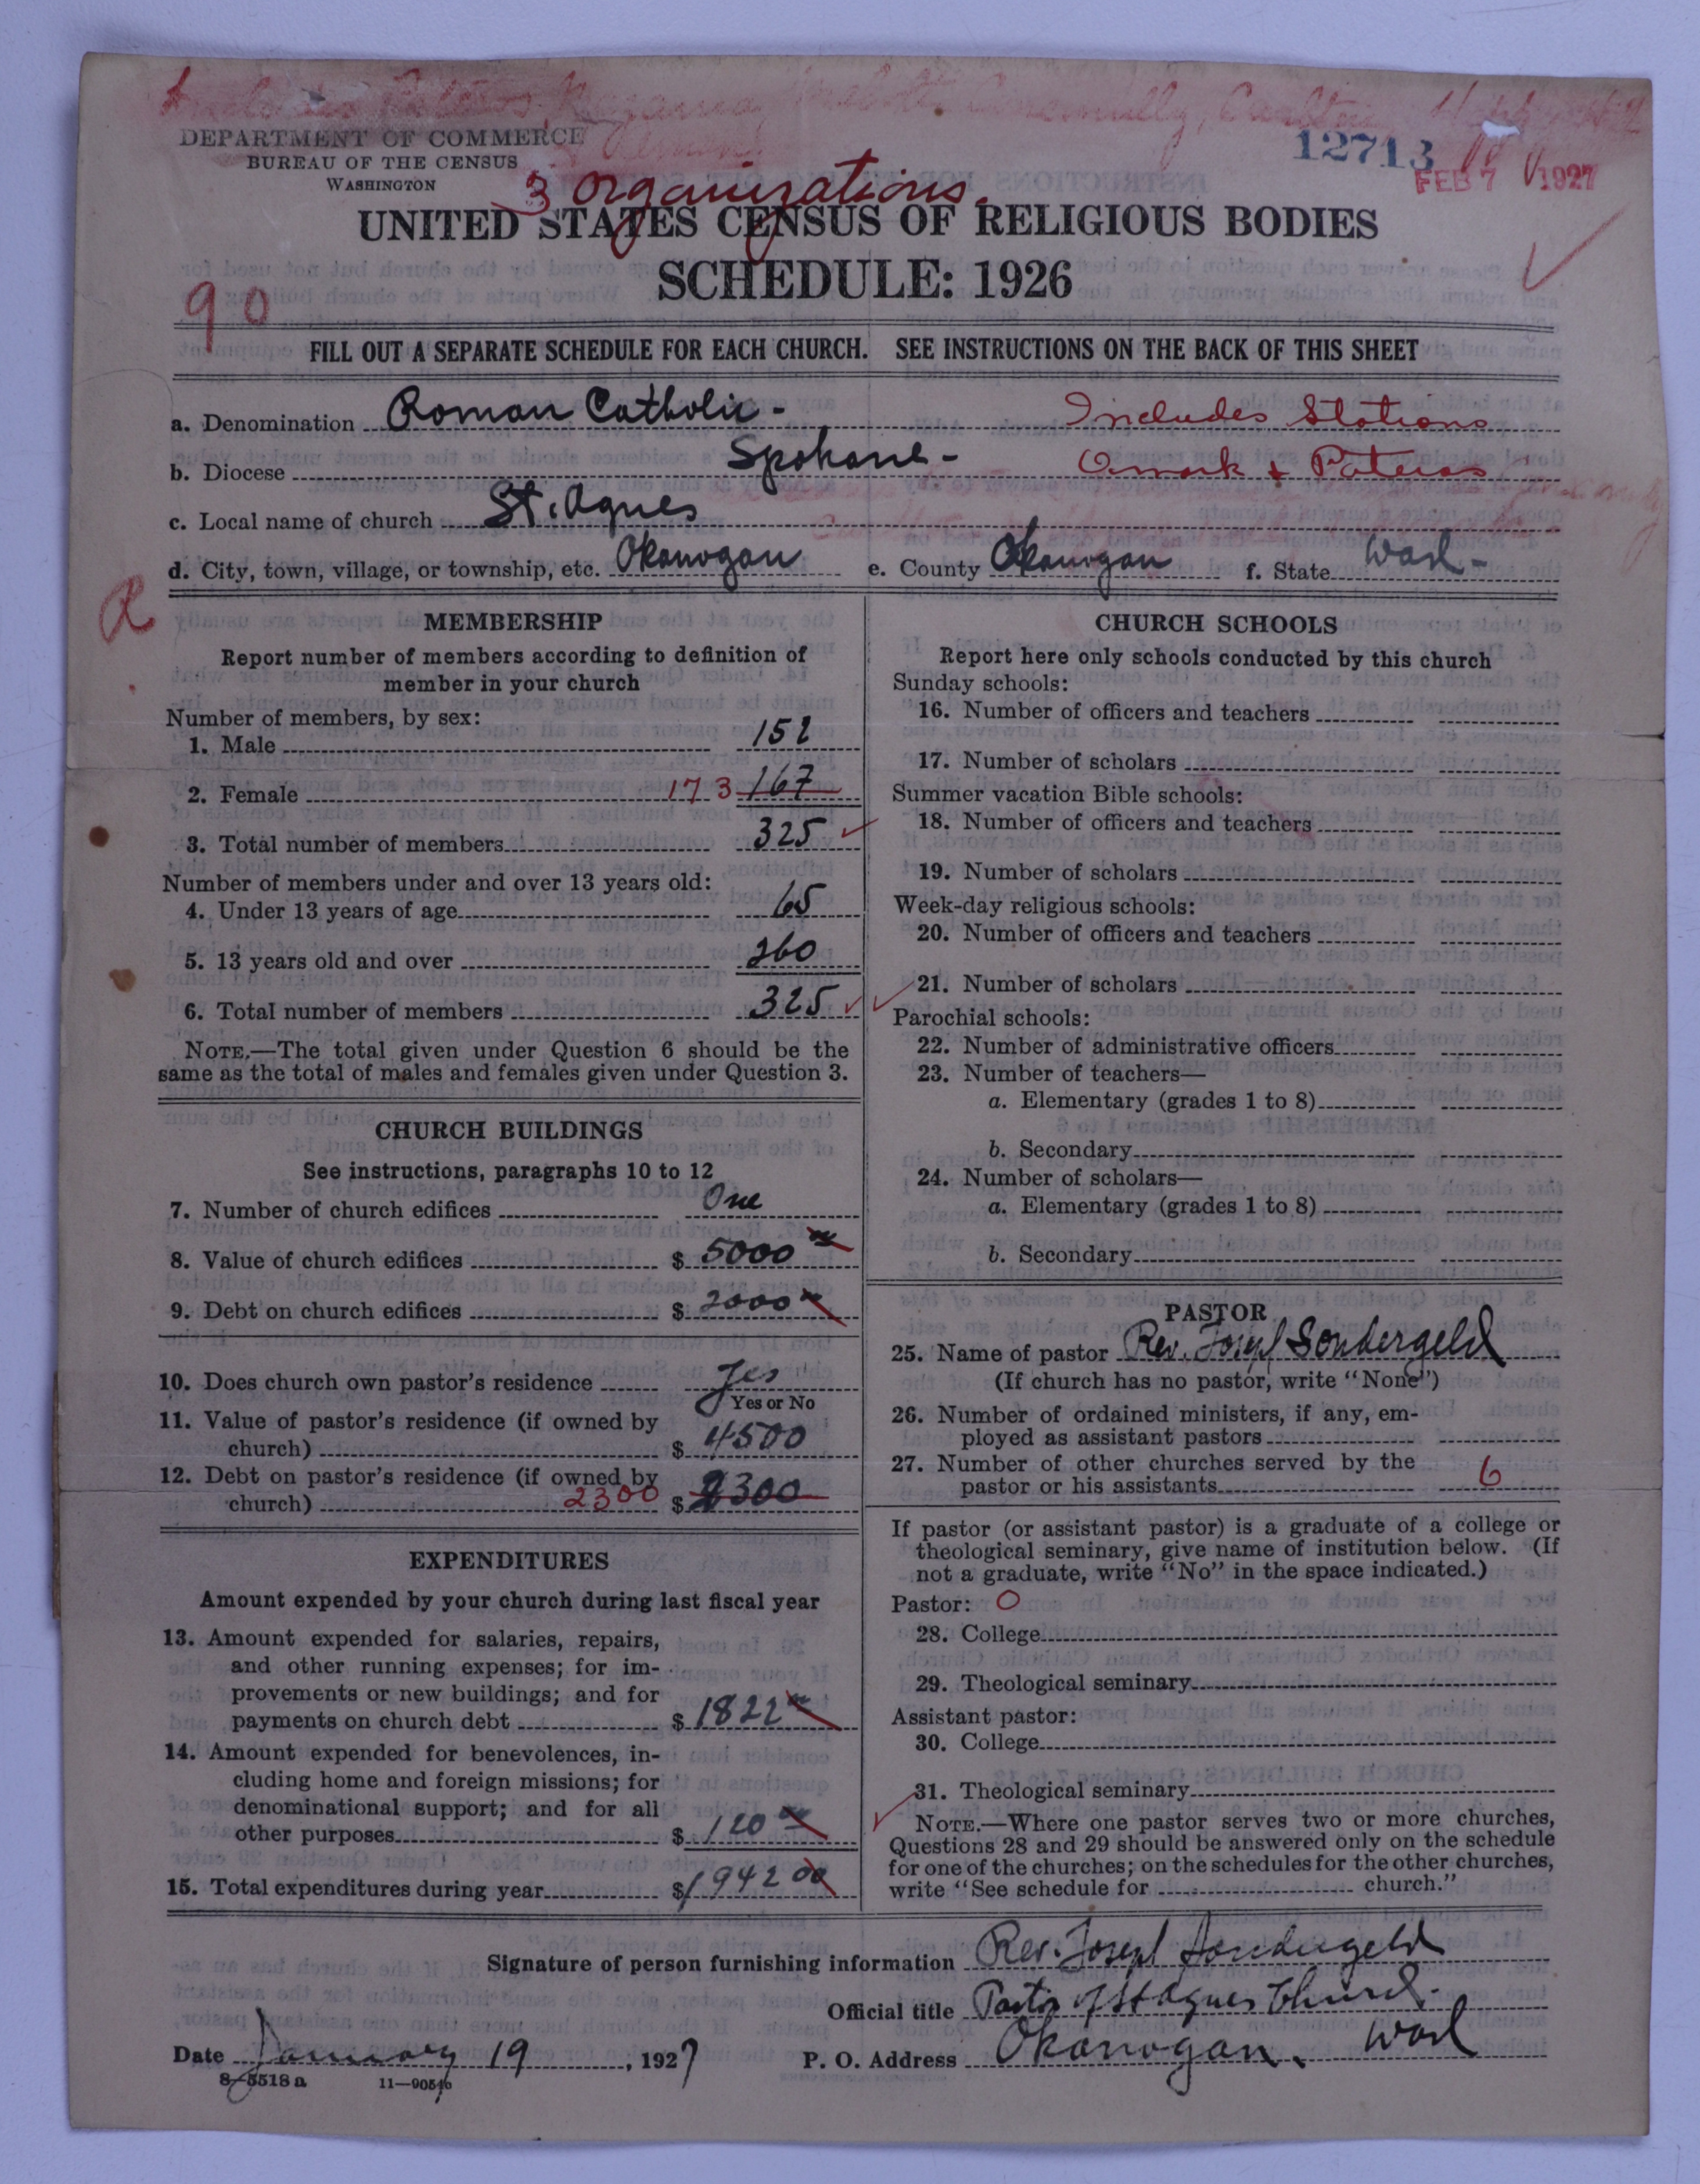 12713
FEB 7 1927
DEPARTMENT OF COMMERCE
BUREAU OF THE CENSUS
WASHINGTON
3 organizations.
UNITED STATES CENSUS OF RELIGIOUS BODIES
SCHEDULE: 1926
90
FILL OUT A SEPARATE SCHEDULE FOR EACH CHURCH. SEE INSTRUCTIONS ON THE BACK OF THIS SHEET
a. Denomination Roman Catholic - Includes Stations
b. Diocese Spokane - Omark + Pateros
c. Local name of church St. Agnes
d. City, town, village, or township, etc. Okanogan e. County Okanogan f. State Wash -
MEMBERSHIP
Report number of members according to definition of
member in your church
Number of members, by sex:
1. Male 152
2. Female 173 167
3. Total number of members 325
Number of members under and over 13 years old:
4. Under 13 years of age 65
5. 13 years old and over 260
6. Total number of members 325
NOTE.—The total given under Question 6 should be the
same as the total of males and females given under Question 3.
CHURCH BUILDINGS
See instructions, paragraphs 10 to 12
7. Number of church edifices One
8. Value of church edifices $ 5000 00
9. Debt on church edifices $ 2000 00
10. Does church own pastor's residence Yes
Yes or No
11. Value of pastor's residence (if owned by
church) $ 4500
12. Debt on pastor's residence (if owned by
church) 2300 $ 2300
EXPENDITURES
Amount expended by your church during last fiscal year
13. Amount expended for salaries, repairs,
and other running expenses; for im-
provements or new buildings; and for
payments on church debt $ 1822 00
14. Amount expended for benevolences, in-
cluding home and foreign missions; for
denominational support; and for all
other purposes $ 120 00
15. Total expenditures during year $ 1942 00
CHURCH SCHOOLS
Report here only schools conducted by this church
Sunday schools:
16. Number of officers and teachers
17. Number of scholars
Summer vacation Bible schools:
18. Number of officers and teachers
19. Number of scholars
Week-day religious schools:
20. Number of officers and teachers
21. Number of scholars
Parochial schools:
22. Number of administrative officers
23. Number of teachers—
a. Elementary (grades 1 to 8)
b. Secondary
24. Number of scholars—
a. Elementary (grades 1 to 8)
b. Secondary
PASTOR
25. Name of pastor Rev. Joseph Sondergeld
(If church has no pastor, write "None")
26. Number of ordained ministers, if any, em-
ployed as assistant pastors
27. Number of other churches served by the
pastor or his assistants 6
If pastor (or assistant pastor) is a graduate of a college or
theological seminary, give name of institution below. (If
not a graduate, write "No" in the space indicated.)
Pastor: 0
28. College
29. Theological seminary
Assistant pastor:
30. College
31. Theological seminary
NOTE.—Where one pastor serves two or more churches,
Questions 28 and 29 should be answered only on the schedule
for one of the churches; on the schedules for the other churches,
write "See schedule for church."
Signature of person furnishing information Rev. Joseph Sondergeld
Official title Pastor of St Agnes Church.
Date January 19, 1927 P. O. Address Okanogan, Wash
8-5518 a 11-9054b